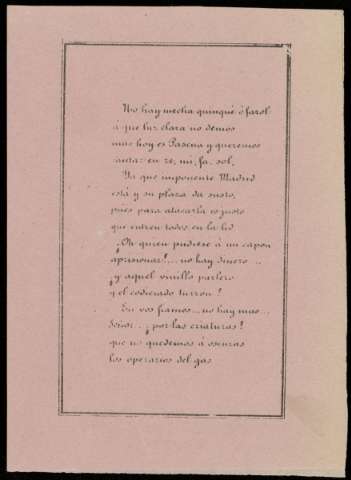 No hay mecha quinqué ó farol
á que luz clara no demos
mas hoy es Pascua y queremos
cantar en re, mi, fa, sol.
Ya que imponente Madrid
está y su plaza da susto,
pues para atacarla es justo
que entren todos en la lid
¡Oh quien pudiese á un capon
aprisionar!... no hay dinero...
¡y aquel vinillo parlero
y el codiciado turron!
En vos fiamos... no hay mas...
Señor... ¡por las criaturas!
que no quedemos á oscuras
los operarios del gas